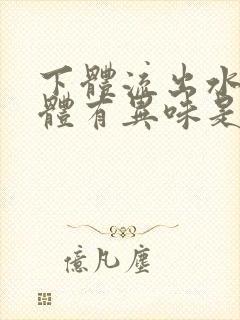 下體流出水
體有異味是
億凡塵